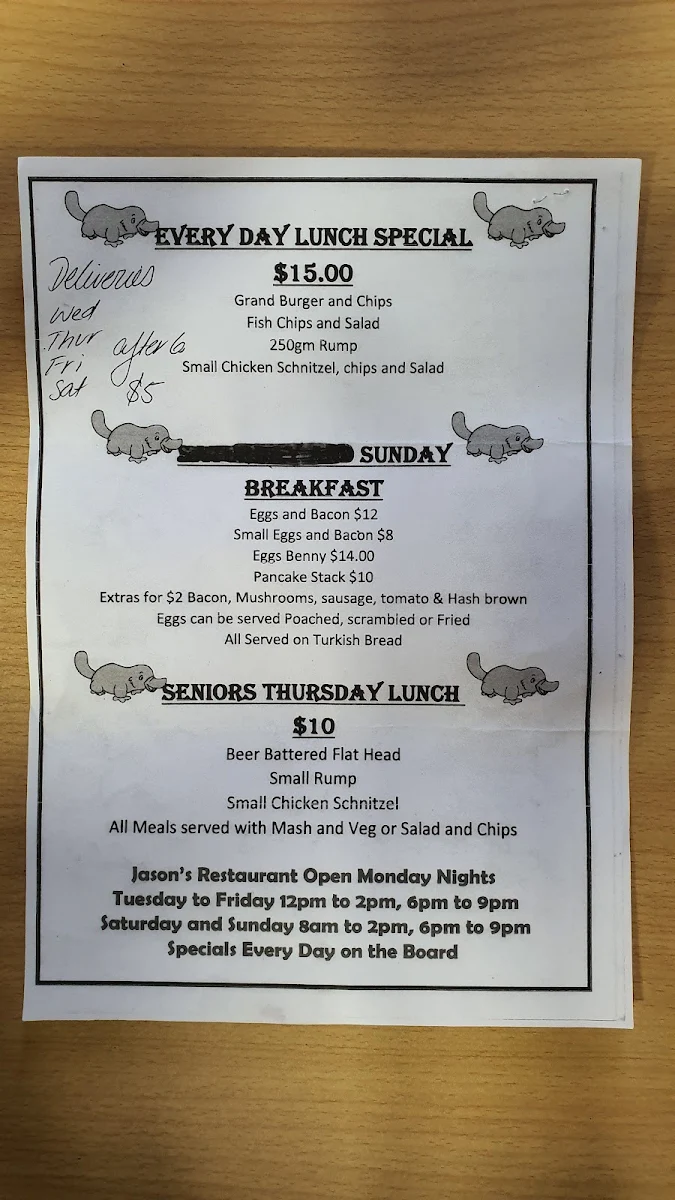 EVERY DAY LUNCH SPECIAL
$15.00
Grand Burger and Chips
Fish Chips and Salad
250gm Rump
Small Chicken Schnitzel, chips and Salad
Deliveries
Wed
Thur
Fri
Sat
after 6
$5
SUNDAY
BREAKFAST
Eggs and Bacon $12
Small Eggs and Bacon $8
Eggs Benny $14.00
Pancake Stack $10
Extras for $2 Bacon, Mushrooms, sausage, tomato & Hash brown
Eggs can be served Poached, scrambled or Fried
All Served on Turkish Bread
SENIORS THURSDAY LUNCH
$10
Beer Battered Flat Head
Small Rump
Small Chicken Schnitzel
All Meals served with Mash and Veg or Salad and Chips
Jason's Restaurant Open Monday Nights
Tuesday to Friday 12pm to 2pm, 6pm to 9pm
Saturday and Sunday 8am to 2pm, 6pm to 9pm
Specials Every Day on the Board